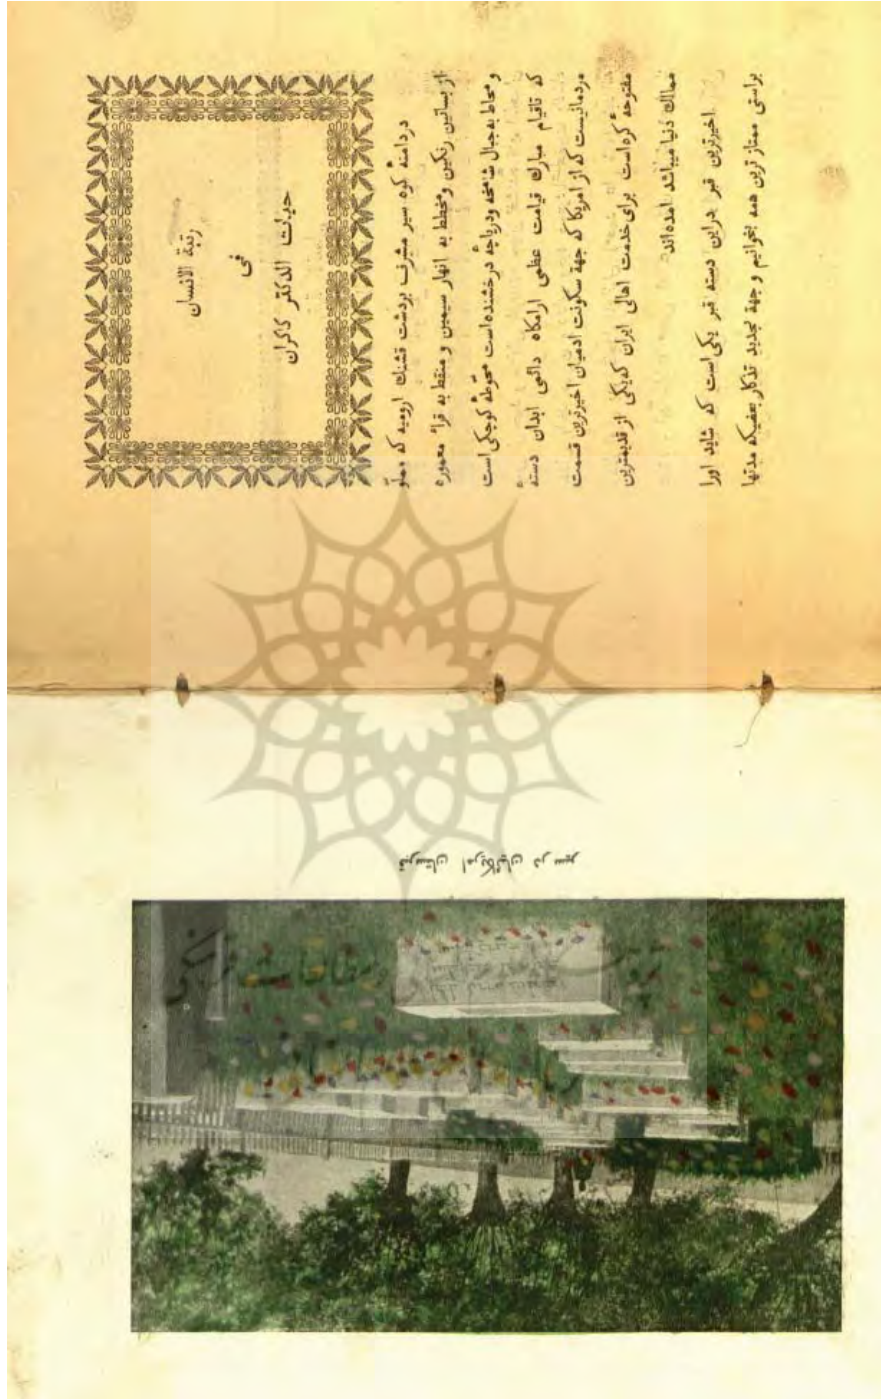 رتبة الانسان
فی
حیات الدکتر کاکران
در دامنهٔ کوه سیر مشرف بردشت قشنك ارومیه که مملّو
از بساتین رنگین ومخطط به انهار سیمین و منقط به قراء معموره
و محاط به جبال شامخه ودریاچهٔ درخشنده است محوّطهٔ کوچکی است
که تاقیام مبارك قیامت عظمی ارامکاه دائمی ابدان دستهٔ
مردمانیست که از امریکا که جهة سکونت ادمیان اخیرترین قسمت
مفتوحهٔ کره است برای خدمت اهالی ایران که یکی از قدیمترین
ممالك دنیا میباشد امده اند
اخیرترین قبر دراین دسته قبر یکی است که شاید اورا
براستی ممتاز ترین همه بخوانیم و جهة تجدید تذکار بعضیکه مدتها
قبرستان امریکائیان در سیر